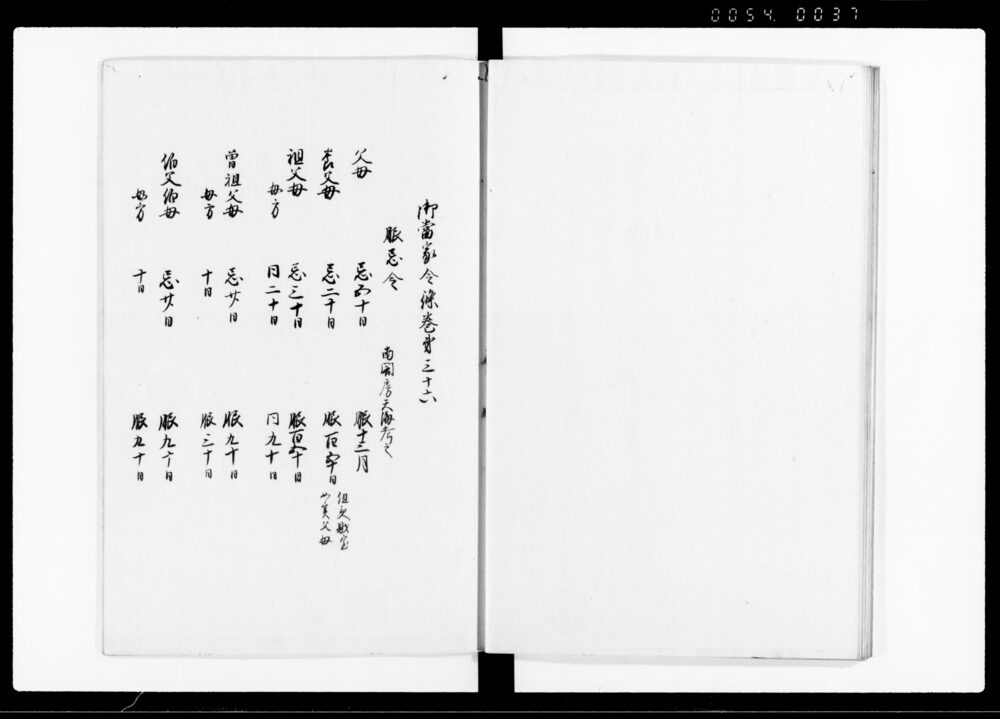 0054. 0037
御當家令條巻第三十六
服忌令
南光房天海考之
父母 忌五十日 服十三月
養父母 忌三十日 服百五十日
但受
父母
祖父母 忌三十日 服百五十日
母方 同二十日 同九十日
曾祖父母 忌廿日 服九十日
母方 十日 服三十日
伯父伯母 忌廿日 服九十日
母方 十日 服九十日